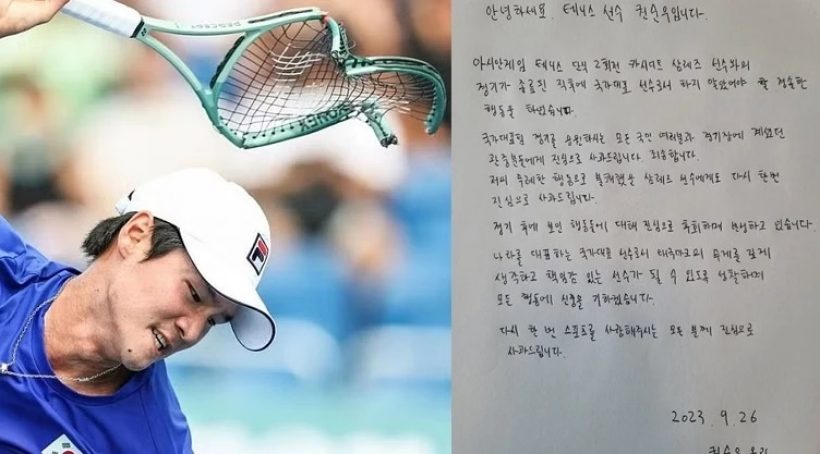 FILA
안녕하세요. 테니스 선수 권순우입니다.
아시안게임 테니스 단식 2회전 카시디트 삼레즈 선수와의
경기가 종료된 직후에 국가대표 선수로서 하지 말았어야 할 경솔한
행동을 하였습니다.
국가대표팀 경기를 응원하시는 모든 국민 여러분과 경기장에 계셨던
관중분들에게 진심으로 사과드립니다. 죄송합니다.
저의 무례한 행동으로 불쾌했을 삼레즈 선수에게도 다시 한번
진심으로 사과드립니다.
경기 후에 보인 행동들에 대해 진심으로 후회하며 반성하고 있습니다.
나라를 대표하는 국가대표 선수로서 태극마크의 무게를 깊게
생각하고 책임감 있는 선수가 될 수 있도록 성찰하며
모든 행동에 신중을 기하겠습니다.
다시 한 번 스포츠를 사랑해주시는 모든 분께 진심으로
사과드립니다.
2023. 9. 26
권순우